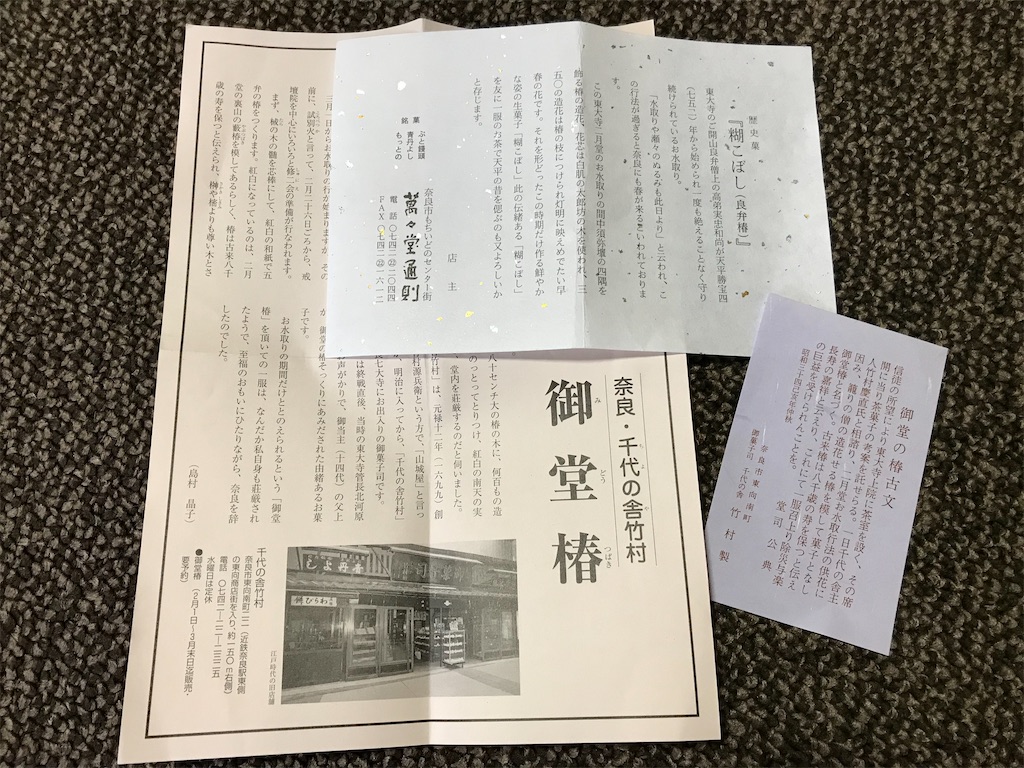 歴史菓
『糊こぼし(良弁椿)』
東大寺のご開山良弁僧上の高弟実忠和尚が天平勝宝四
(七五二)年から始められ一度も絶えることなく守り
続けられているお水取り。
「水取りや瀬々のぬるみも此日より」と云われ、こ
の行法が過ぎると奈良にも春が来るといわれておりま
す。
この東大寺二月堂のお水取りの間中須弥壇の四隅を
飾る椿の造花、花芯は白肌の太郎坊の木を使われ、三
五〇の造花は椿の枝につけられ灯明に映えめでたい早
春の花です。それを形どったこの時期だけ作る鮮やか
な姿の生菓子「糊こぼし」此の伝緒ある「糊こぼし」
を友に一服のお茶で天平の昔を偲ぶのも又よろしいか
と存じます。
店主
銘菓
ぶと饅頭
青丹よし
もっとの
奈良市もちいどのセンター街
萬々堂通則
電話〇七四二㉒二〇四四
FAX〇七四二㉒一六一二
御堂の椿古文
信徒の所望により東大寺上院に茶筵を設く、その席
間に当り茶菓子の名案を託せらる。一日千代の舎主
人竹村慶直氏と相諮り、二月堂お水取行法の供花に
因み、籠りの僧の造花せる椿を模して菓子となし
御堂椿と名づく。古来椿は八千歳の寿を保つと伝え
長寿の嘉樹と云えり、これにて一服召上り除災与楽
の巨益を受けられんことを。
昭和二十四己丑年仲秋
堂司公典
奈良市東向南町
御菓子司 千代の舎 竹村製
奈良・千代の舎竹村
御堂椿
みどうつばき
八十センチ大の椿の木に、何百もの造
のっとってとりつけ、紅白の南天の実
、堂内を荘厳するのだと伺いました。
竹村」は、元禄十二年(一六九九)創
村源兵衛という方で、「山城屋」と言っ
、明治に入ってから、「千代の舎竹村」
七大寺にお出入りの御菓子司です。
は終戦直後、当時の東大寺管長北河原
声がかりで、御当主(十四代)の父上
が、御堂の椿そっくりにあみだされた由緒あるお菓
子です。
お水取りの期間だけととのえられるという「御堂
椿」を頂いての一服は、なんだか私自身も荘厳され
たようで、至福のおもいにひたりながら、奈良を辞
したのでした。
(島村 晶子)
三月一日からお水取りの行が始まりますが、その
前に、試別火と言って、二月二十六日ごろから、戒
壇院を中心にいろいろと修二会の準備が行なわれます。
まず、椀の木の髄を芯棒にして、紅白の和紙で五
弁の椿をつくります。紅白になっているのは、二月
堂の裏山の藪椿を模してあるらしく、椿は古来八千
歳の寿を保つと伝えられ、榊や樒よりも尊い木とさ
青丹よし
わらび餅
江戸時代の旧店舗
千代の舎竹村
奈良市東向南町二二(近鉄奈良駅東側
の東向商店街を入り、約一五〇m右側)
電話 〇七四二-二二-二三二五
水曜日は定休
●御堂椿(2月1日〜3月末日迄販売・
要予約)